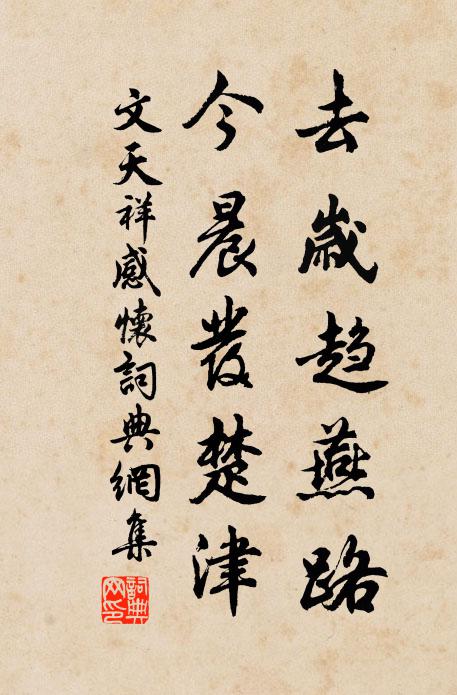 去歲趨燕路
今晨發楚津
文天祥感懷詞典網集
詞典網印